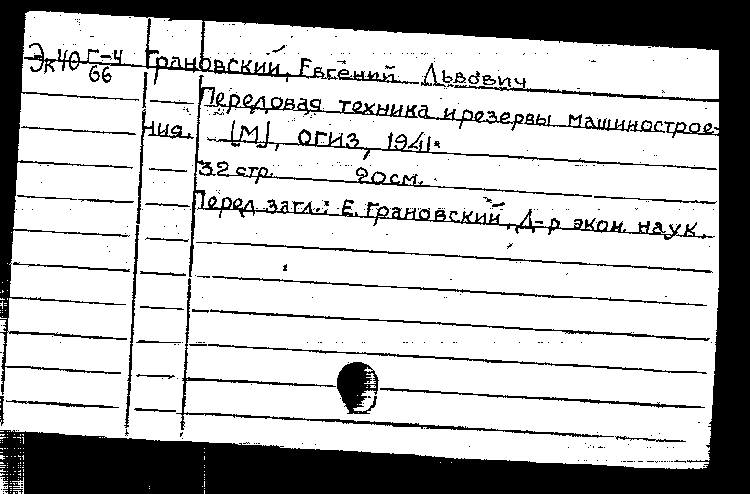 Эк40 Г-4
66
Грановский, Евгений Львович
Передовая техника и резервы машинострое-
ния. [М], ОГИЗ, 1941.
32 стр. 20см.
Перед загл.: Е. Грановский, Д-р экон. наук.